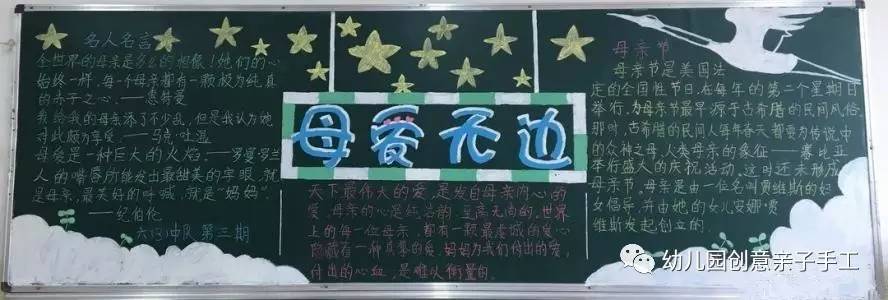 名人名言
全世界的母亲是多么的相像!她们的心
始终一样,每一个母亲都有一颗极为纯真
的赤子之心。——惠特曼
我给我的母亲添了不少乱,但是我认为她
对此颇为享受。——马克·吐温
母爱是一种巨大的火焰。——罗曼·罗兰
人的嘴唇所能发出最甜美的字眼,就
是母亲,最美好的呼唤,就是“妈妈”。
——纪伯伦
第三期
母爱无边
天下最伟大的爱,是发自母亲内心的
爱,母亲的心是纯洁的,至高无尚的,世界
上的每一位母亲,都有一颗最忠诚的爱心
隐藏着一种真挚的爱,妈妈为我们付出的爱,
付出的心血,是难以衡量的。
母亲节
母亲节是美国法
定的全国性节日,在每年的第二个星期日
举行,母亲节最早源于古希腊的民间风俗。
那时,古希腊的民间人每年春天都要为传说中
的众神之母,人类母亲的象征——赛比亚
举行盛大的庆祝活动。这时还未形成
母亲节。母亲是由一位名叫贾维斯的妇
女倡导,并由她的女儿安娜·贾
维斯发起创立的。
幼儿园创意亲子手工